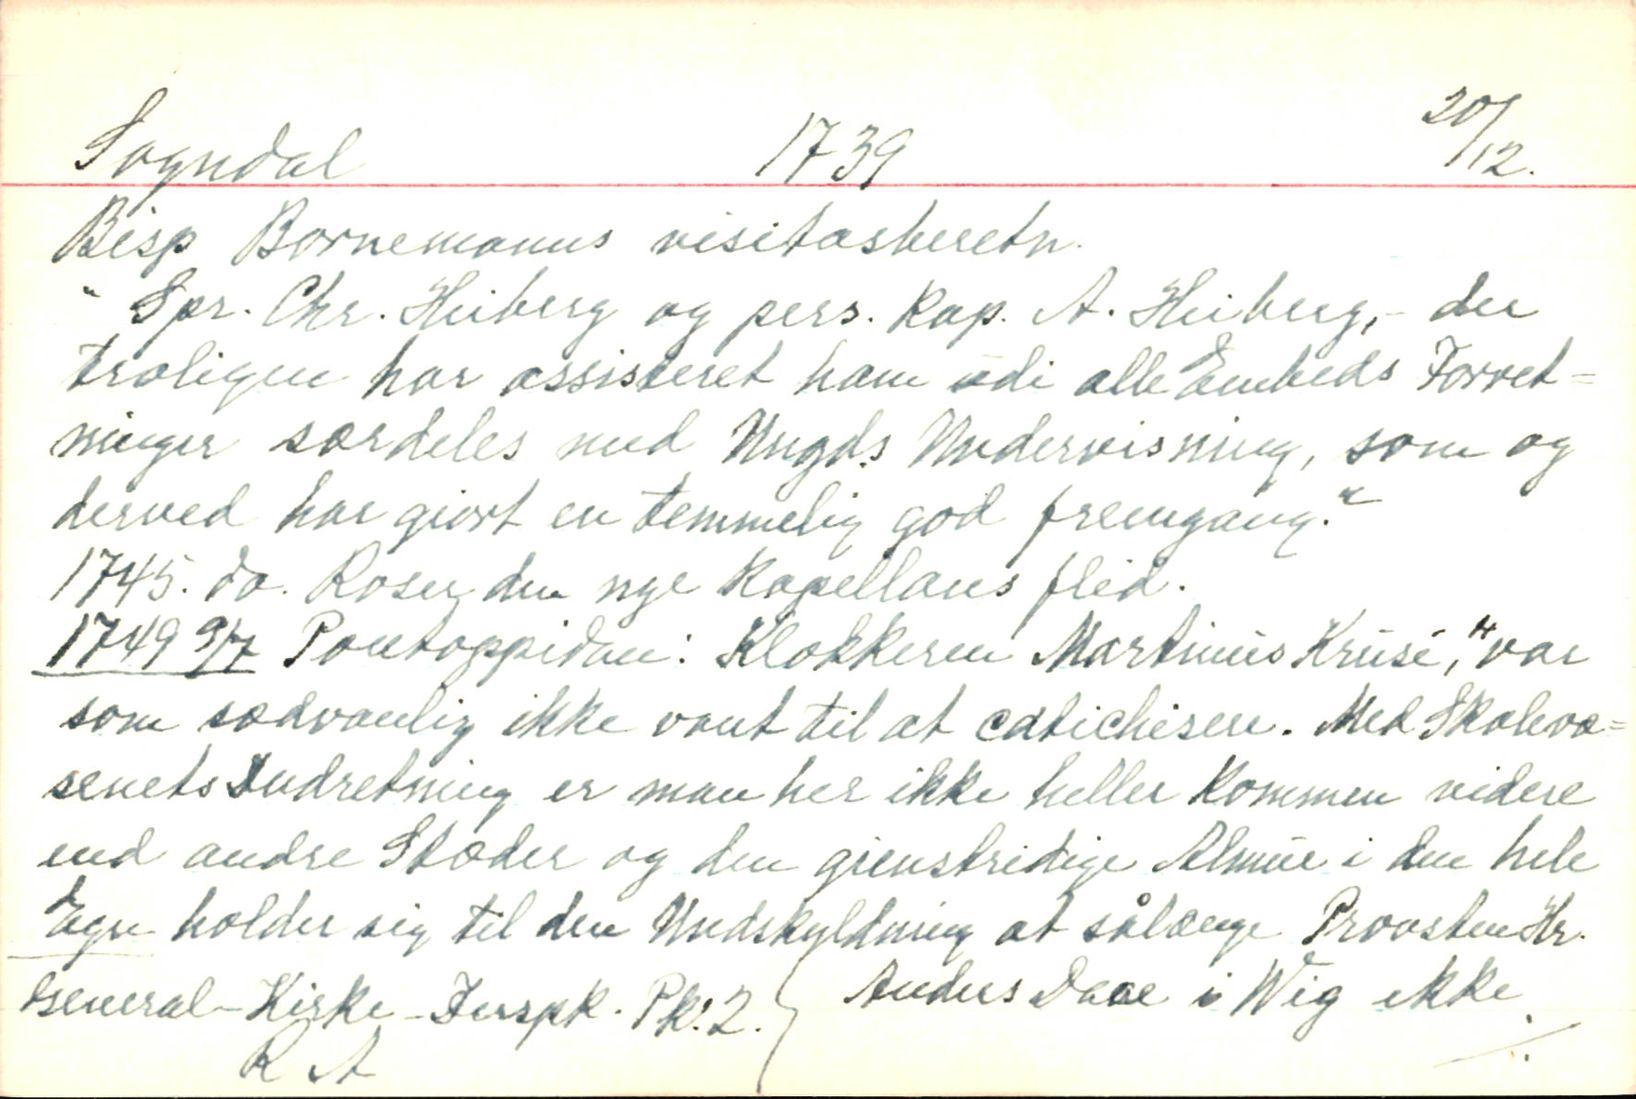 Sogndal 1739 20/12.
Bisp Bornemanns visitasberetn.
" Spr. Chr. Heiberg og pers. Kap. A. Heiberg, - der
troligen har assisteret ham udi alle Embeds Forret=
ninger særdeles med Ungds Undervisning, som og
derved har giort en temmelig god fremgang."
1745. do. Roser den nye Kapellans flid.
1749 9/7 Pontoppidan: Klokkeren Martinus Kruse, "var
som sædvanlig ikke vant til at catichisere. Med Skolevæ=
senets Indretning er man her ikke heller kommen videre
end andre Stæder og den gienstridige Almue i den hele
Egn holder sig til den Undskyldning at sålænge Provsten Hr.
Anders Daae i Wig ikke
General-Kirke-Inspk. Pk. 2.
R A